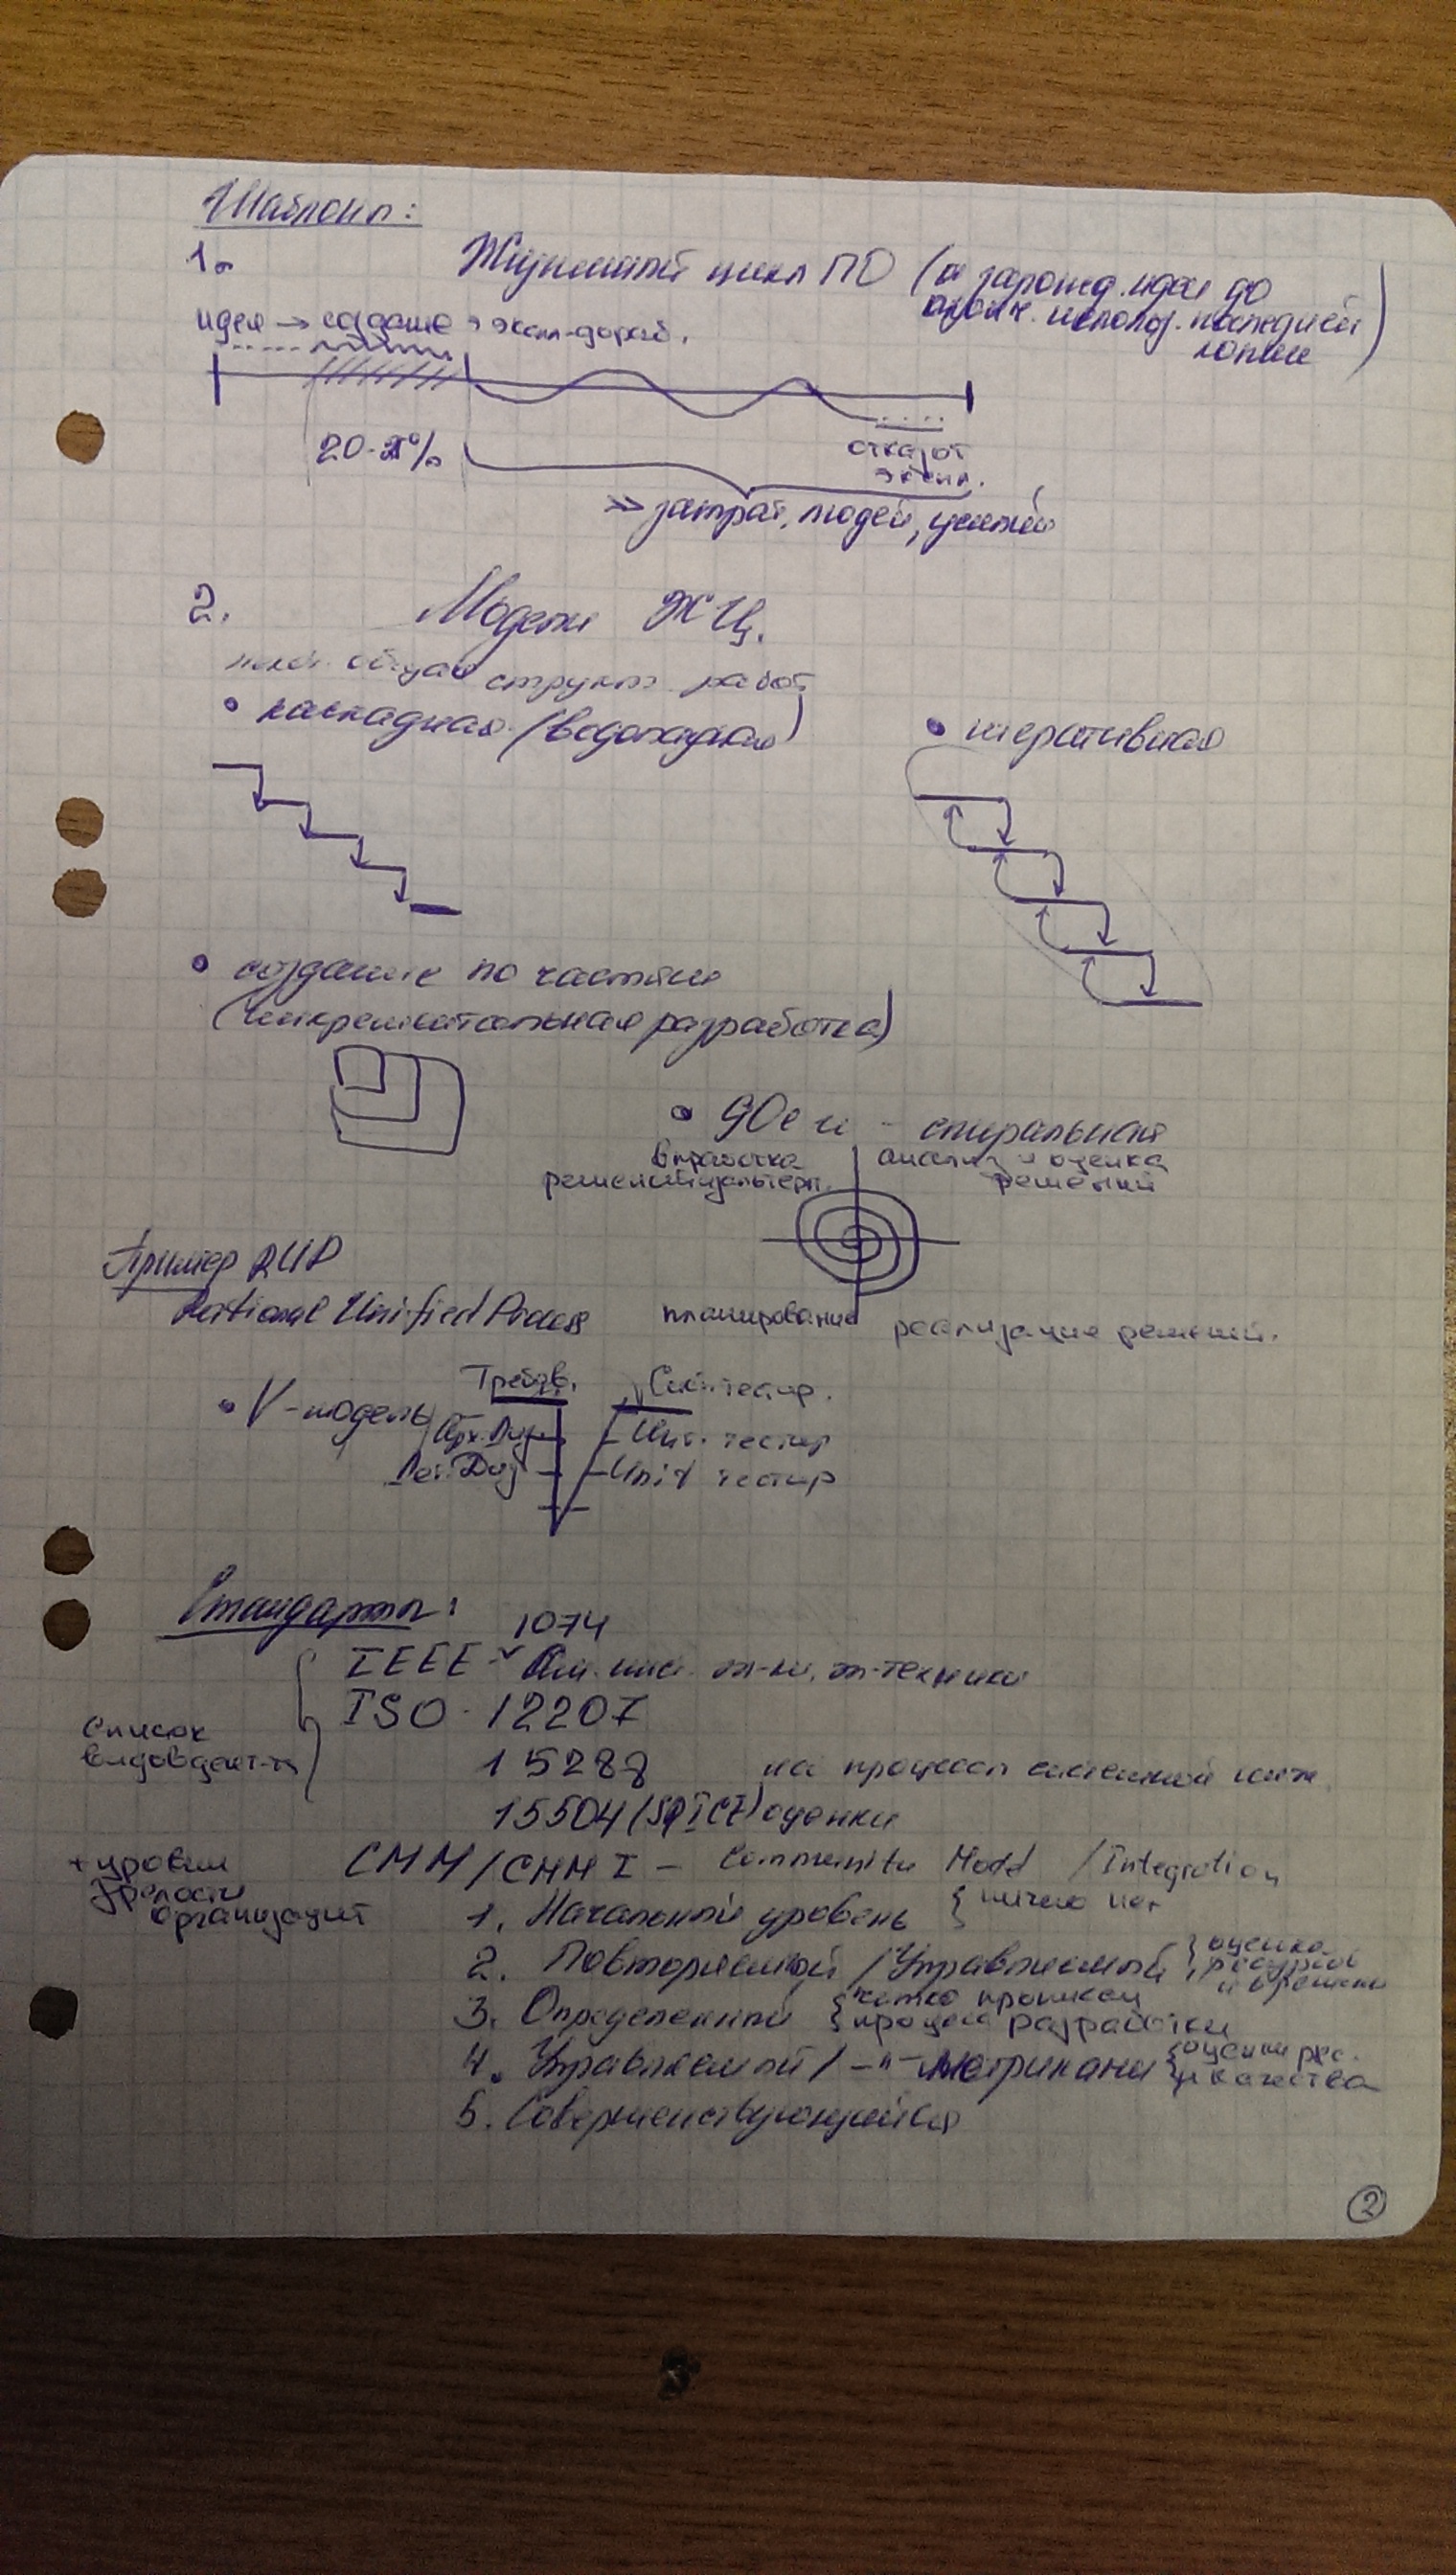 Шаблоны:
1. Жизненный цикл ПО (от зарожд. идеи до
оконч. использ. последней
копии)
идея → создание → экспл-дораб.
20-%
отказ от
экспл.
>> затрат, людей, усилий
2. Модели ЖЦ.
общая структ. работ
• каскадная (водопадная)
• итеративная
• создание по частям
(инкрементальная разработка)
• 90е гг - спиральная
выработка
решений/альтерн.
анализ и оценка
решений
Пример RUP
Rational Unified Process
планирование
реализация решений.
• V-модель
Требов.
Сист. тестир.
Арх. Диз
Инт. тестир
Дет. Диз
Unit тестир
Стандарты:
1074
IEEE - Ам. инст. эл-ки, эл-техники
ISO - 12207
Список
видов деят-ти
15288 на процессы системной инж.
15504 (SPICE) оценки
+ уровни
зрелости
организаций
CMM/CMMI - Model / Integration
1. Начальный уровень { ничего нет
2. Повторяемый / Управляемый } оценка
ресурсов
и времени
3. Определенный { четко прописан
процесс разработки
4. Управляемый / -"- метриками { оценки рес.
и качества
5. Совершенствующийся
2